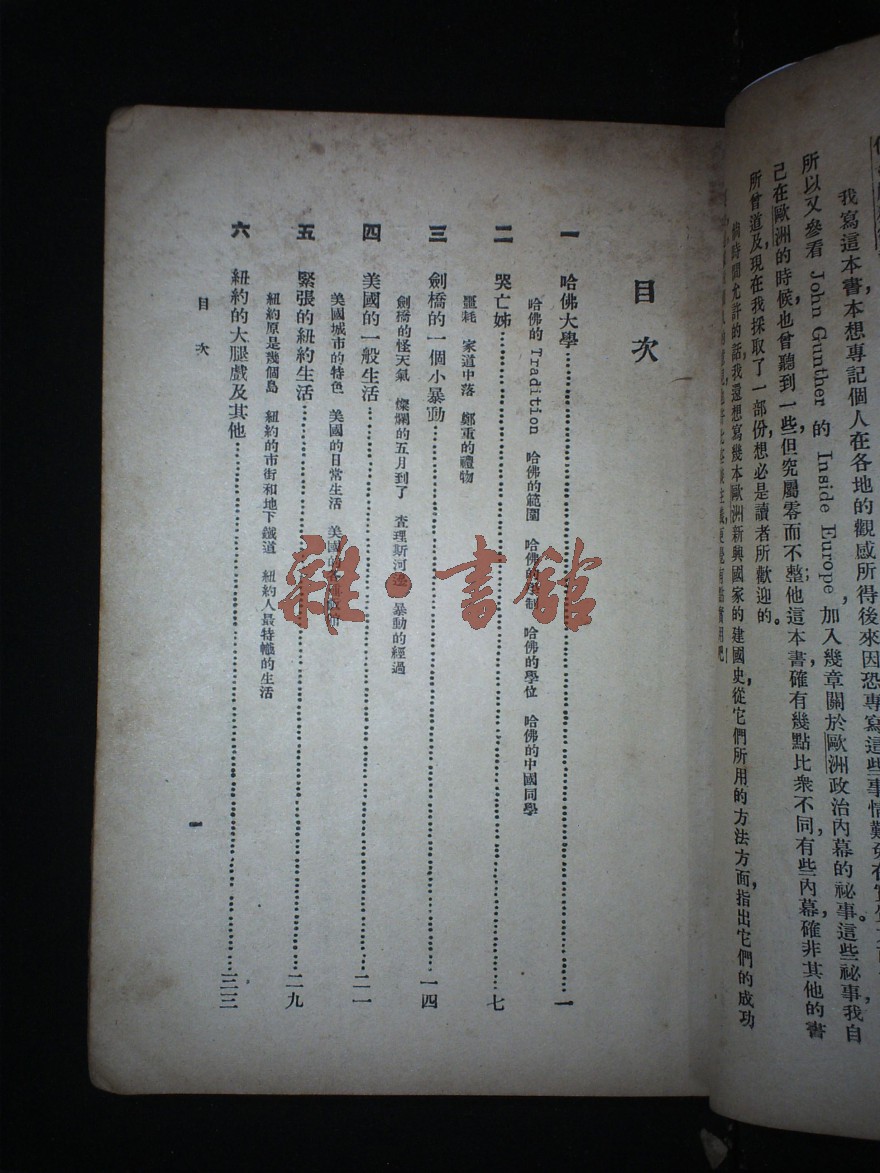 我寫這本書本想專記個人在各地的觀感所得後來因恐專寫這些事情難免
所以又參看 John Gunther 的 Inside Europe，加入幾章關於歐洲政治內幕的祕事。這些祕事，我自
己在歐洲的時候，也曾聽到一些；但究屬零而不整，他這本書，確有幾點比衆不同，有些內幕，確非其他的書
所曾道及，現在我採取了一部份，想必是讀者所歡迎的。
時間允許的話，我還想寫幾本歐洲新興國家的建國史，從它們所用的方法方面，指出它們的成功
目次
一 哈佛大學……一
哈佛的 Tradition 哈佛的範圍 哈佛的學制 哈佛的學位 哈佛的中國同學
二 哭亡姊……七
噩耗 家道中落 鄭重的禮物
三 劍橋的一個小暴動……一四
劍橋的怪天氣 燦爛的五月到了 查理斯河邊 暴動的經過
四 美國的一般生活……二一
美國城市的特色 美國的日常生活 美國的
五 緊張的紐約生活……二九
紐約原是幾個島 紐約的市街和地下鐵道 紐約人最特別的生活
六 紐約的大腿戲及其他……三三
目次
一
雜·書館